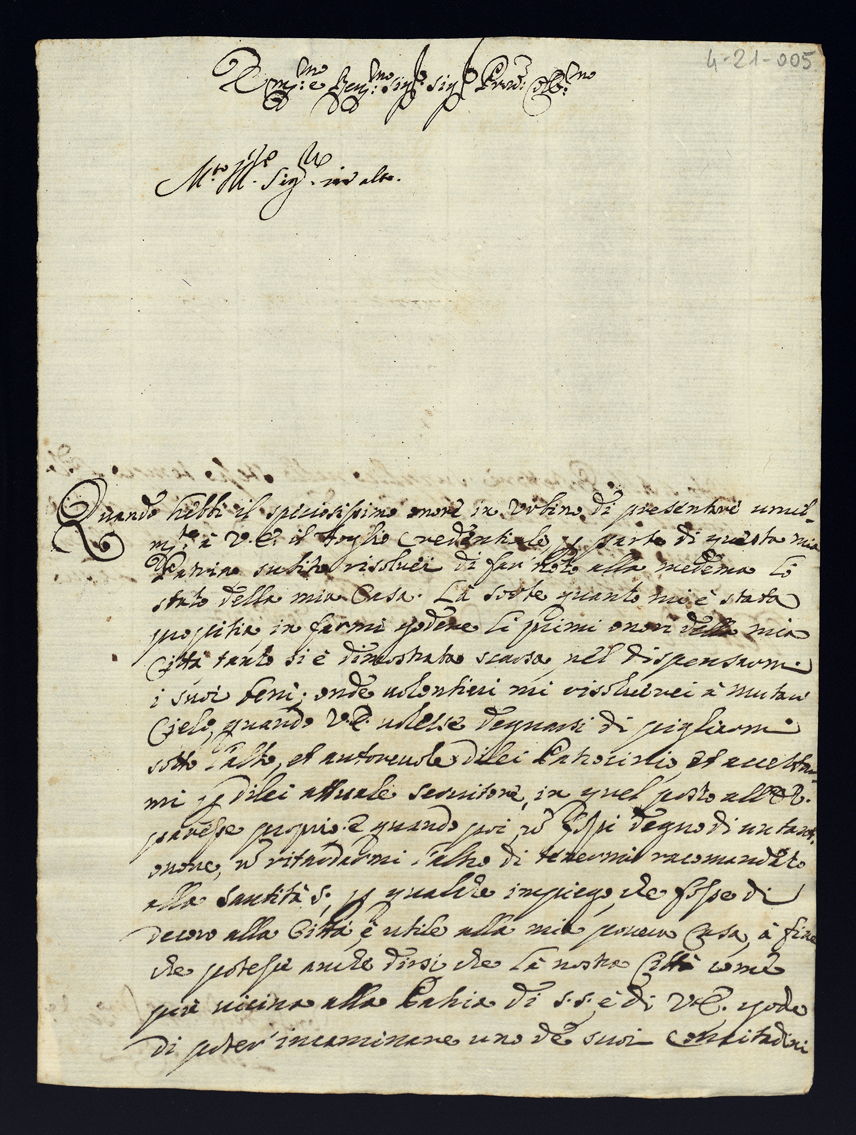 4-21-005
Em:mo e Rev:mo Sig.r Sig.r Pron Col:mo
M.to Ill. Sig.r mio alto.
Quando hebbi il speciosissimo onore in Urbino di presentare umil
m.te à V.E. il foglio credentiale p parte di questa mia
Patria subito risoluei di far noto alla medema lo
stato della mia Casa. La sorte quanto mi è stata
propitia in farmi godere li primi onori della mia
Città tanto si è dimostrata scarsa nel dispensarmi
i suoi beni; onde uolentieri mi rissoluerei à mutar
Cielo, quando V.E. uolesse degnarsi di pigliarmi
sotto l'alto, et autoreuole di lei Patrocinio, et accettar
mi p di lei attuale seruitore, in quel posto all' E.V.
paresse proprio. E quando poi nõ fossi degno di un tant
onore, nõ ritardarmi l'altro di tenermi racomandato
alla Santità S. p qualche impiego, che fosse di
decoro alla Città, e utile alla mia pouera Casa, à fine
che potesse anche dirsi che la nostra Città come
più uicina alla Patria di S.S. e di V.E. gode
di poter' incaminare uno de suoi Concitadini